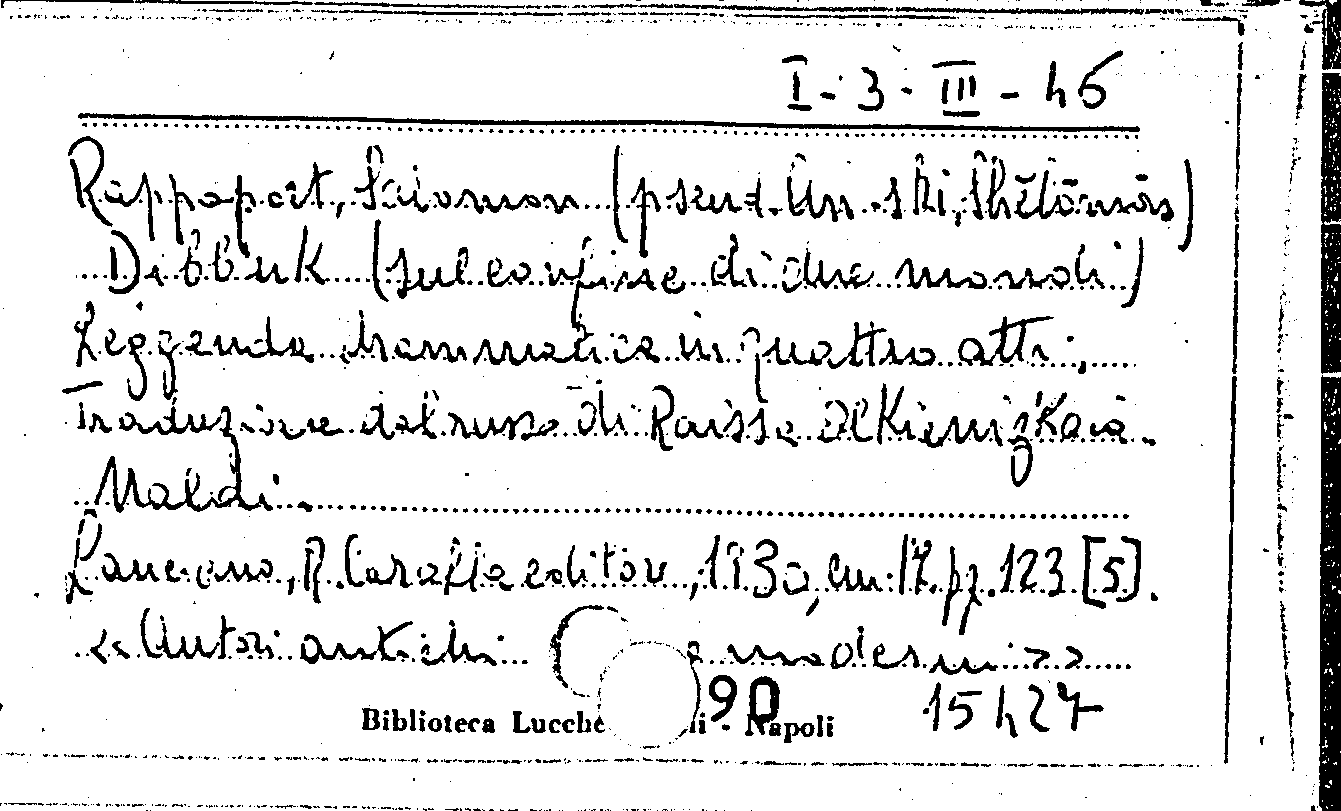 I - 3 - III - 46
Rappoport, Salomon (pseud. An.-ski, Shĕlōmōs)
Dibbuk (sul confine di due mondi)
Leggenda drammatica in quattro atti;
Traduzione dal russo di Raissa Olkienizkaia-
Naldi.
Lanciano, R. Carabba editore, 1930, cm. 17. pp. 123 [5].
<< Autori antichi e moderni >>
Biblioteca Lucche li - Napoli
90 15427